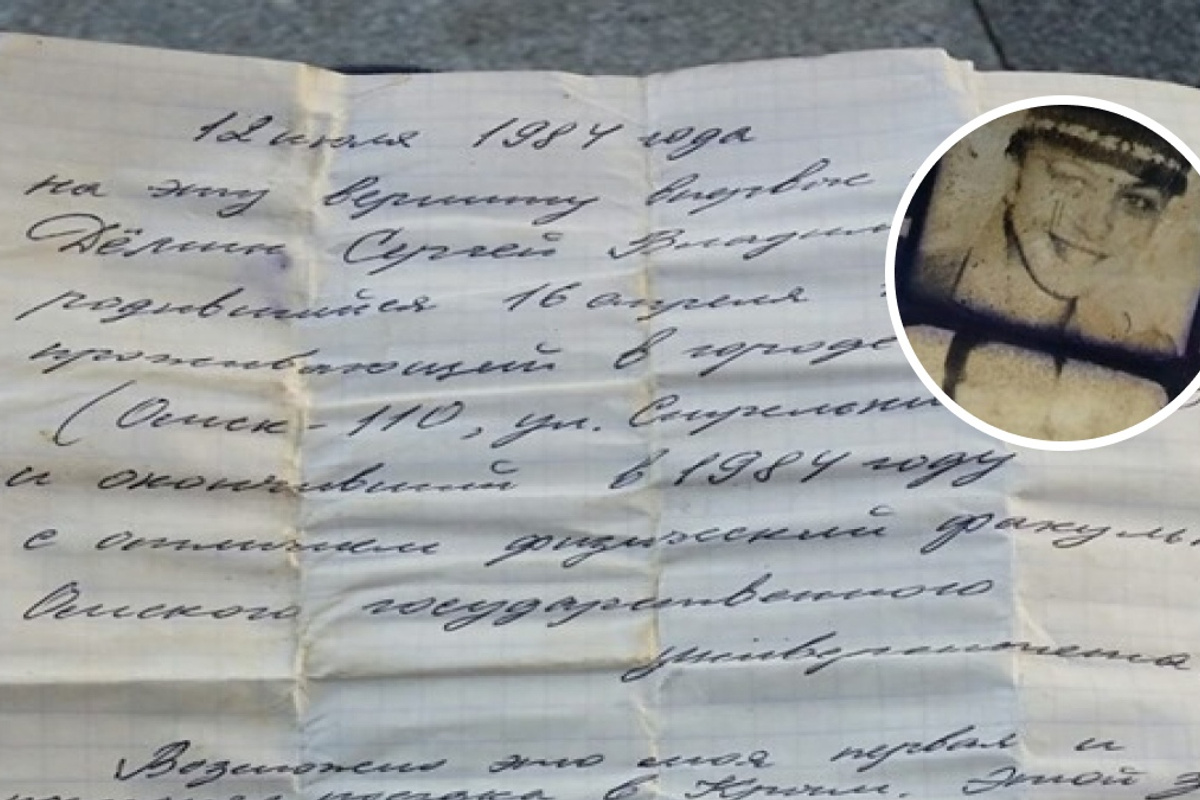 12 июля 1984 года
на эту вершину впервые
Дёмин Сергей Владим
родившийся 16 апреля
проживающий в городе
(Омск-110, ул.
и окончивший в 1984 году
с отличием физический факуль
Омского государственного
университета
Возможно это моя первая и
поездка в Крым. Этой